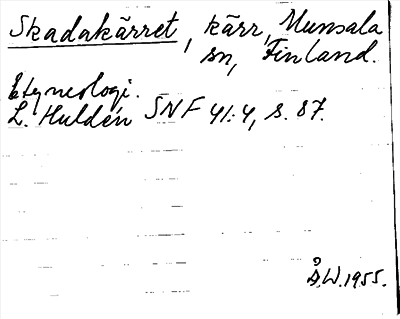 Skadakärret, kärr, Munsala
sn, Finland.
Etymologi.
L. Huldén SNF 41:4, s. 87.
Å.W. 1955.